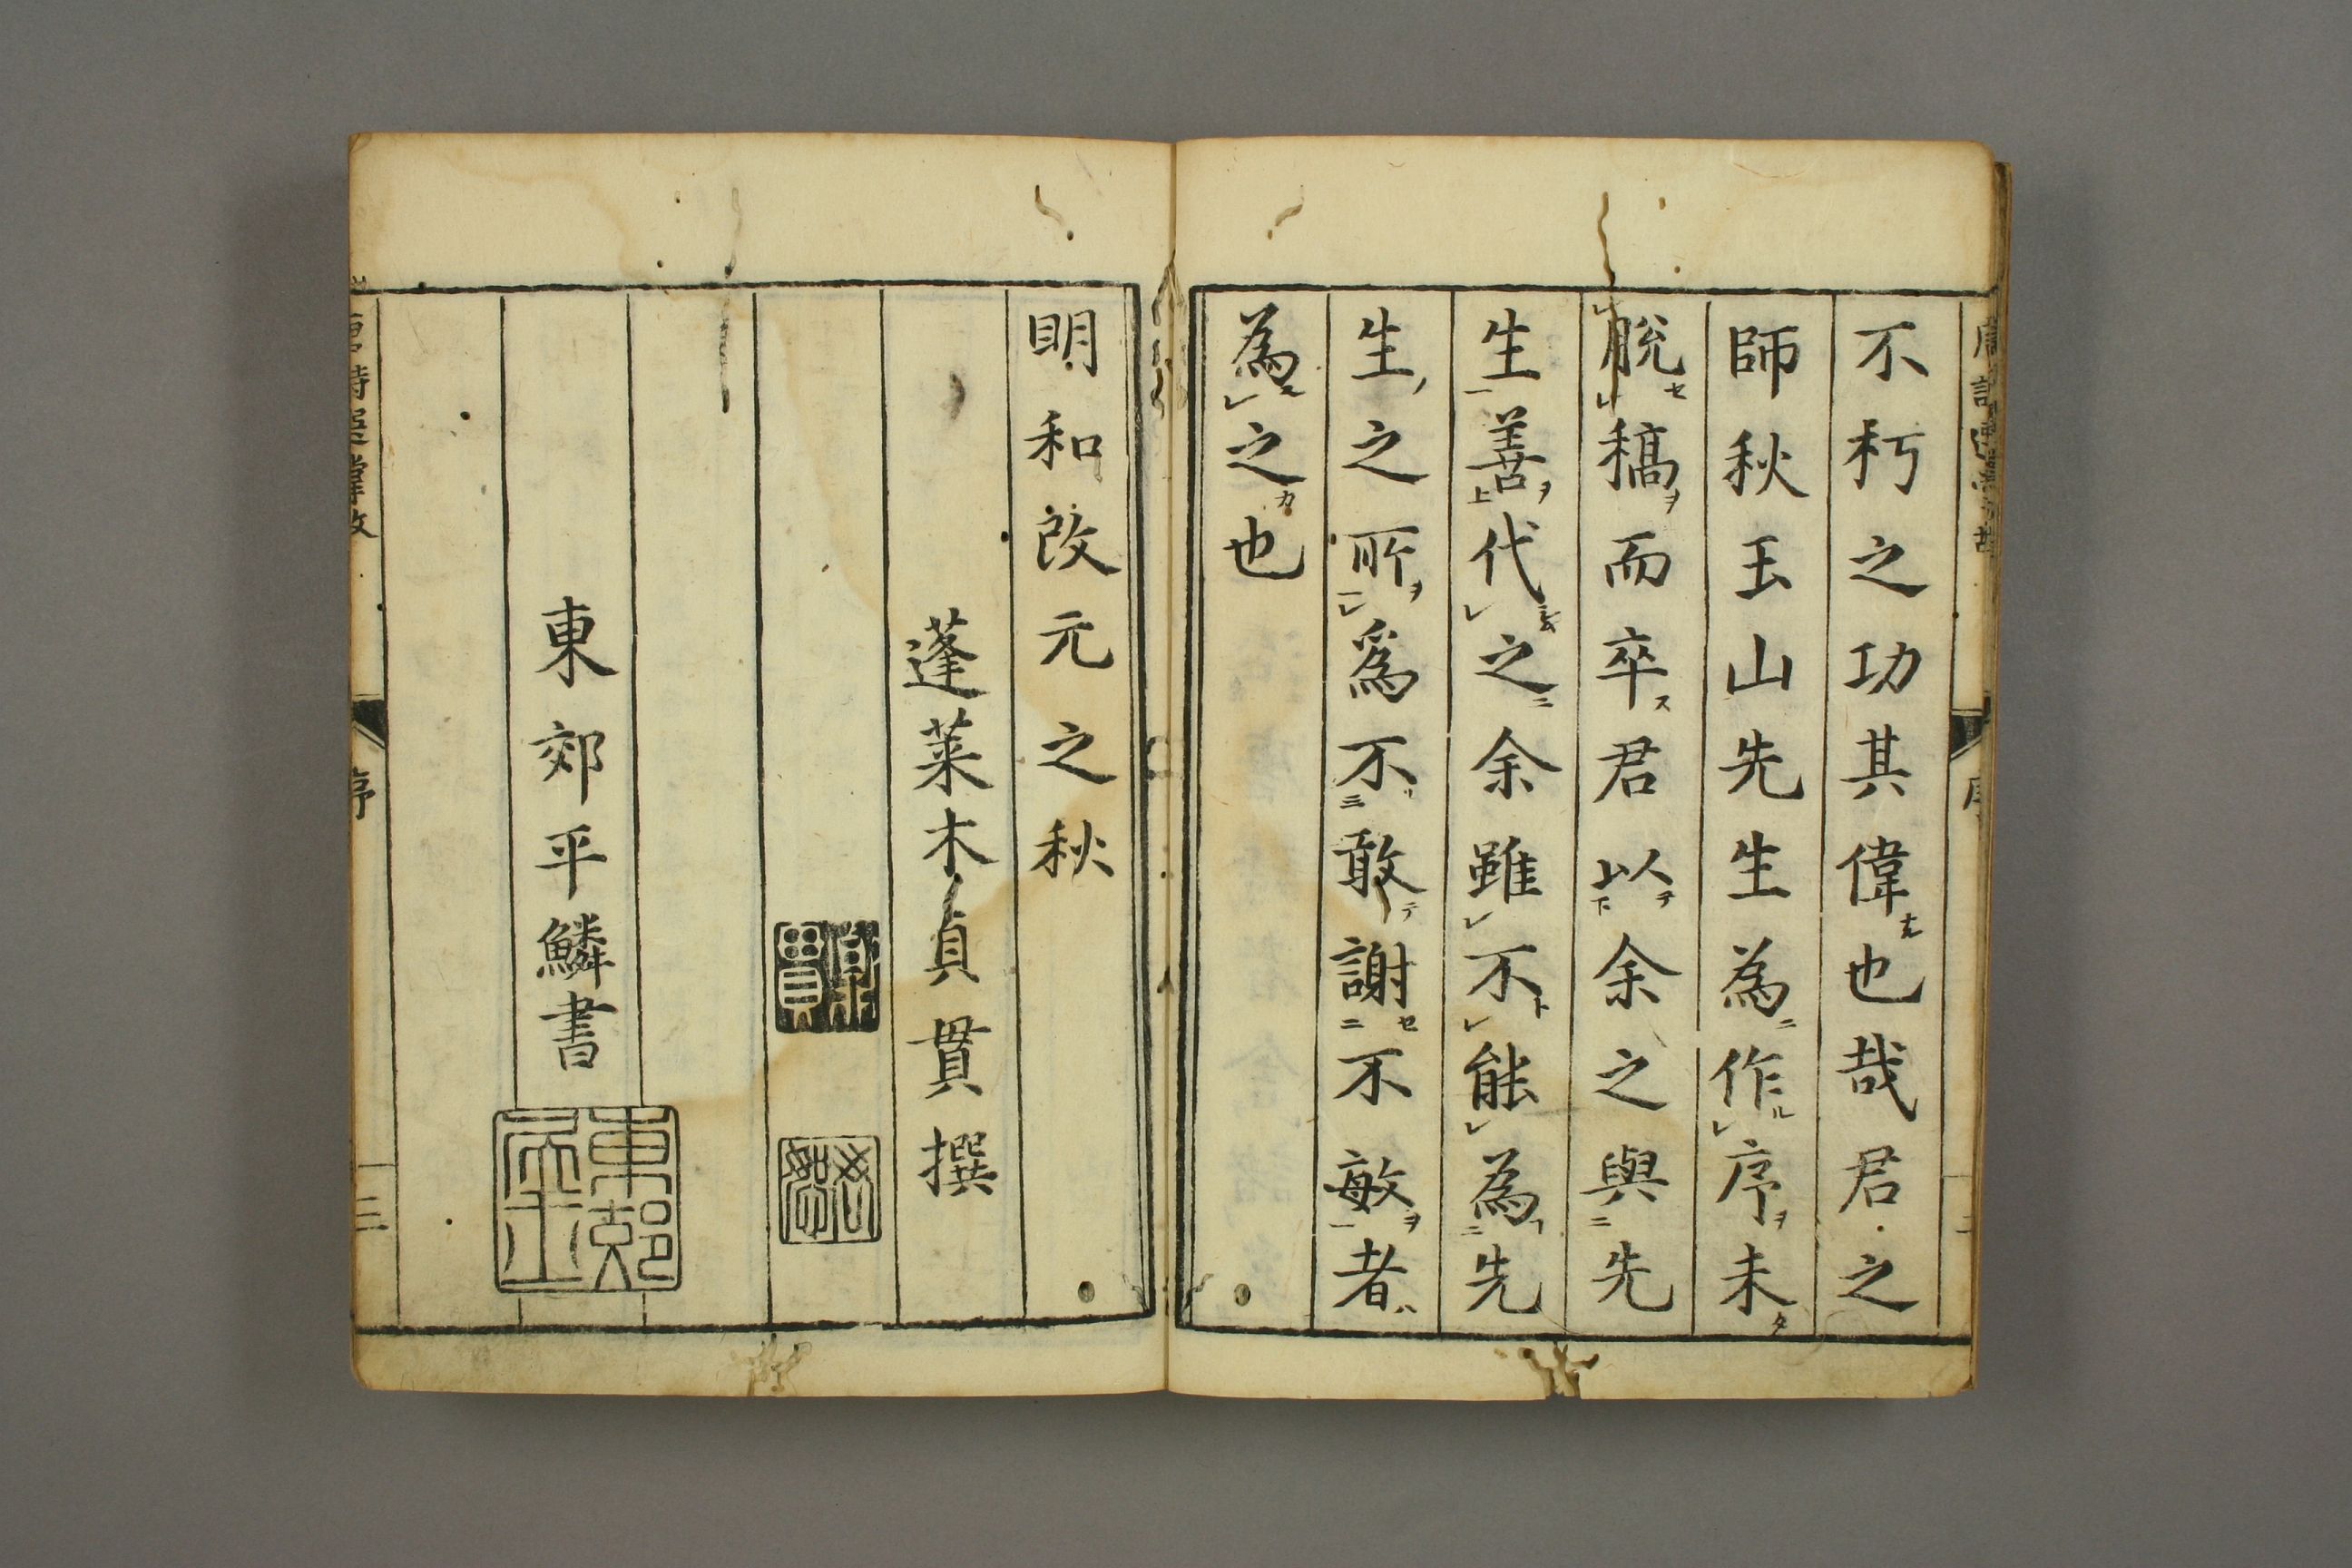 不朽之功其偉也哉君之
師秋玉山先生為作序未
脫稿而卒君以余之與先
生善代之余雖不能為先
生之所爲不敢謝不敏者
為之也
明和改元之秋
蓬萊木貞貫撰
貞貫
東郊平鱗書
東郊
序
三